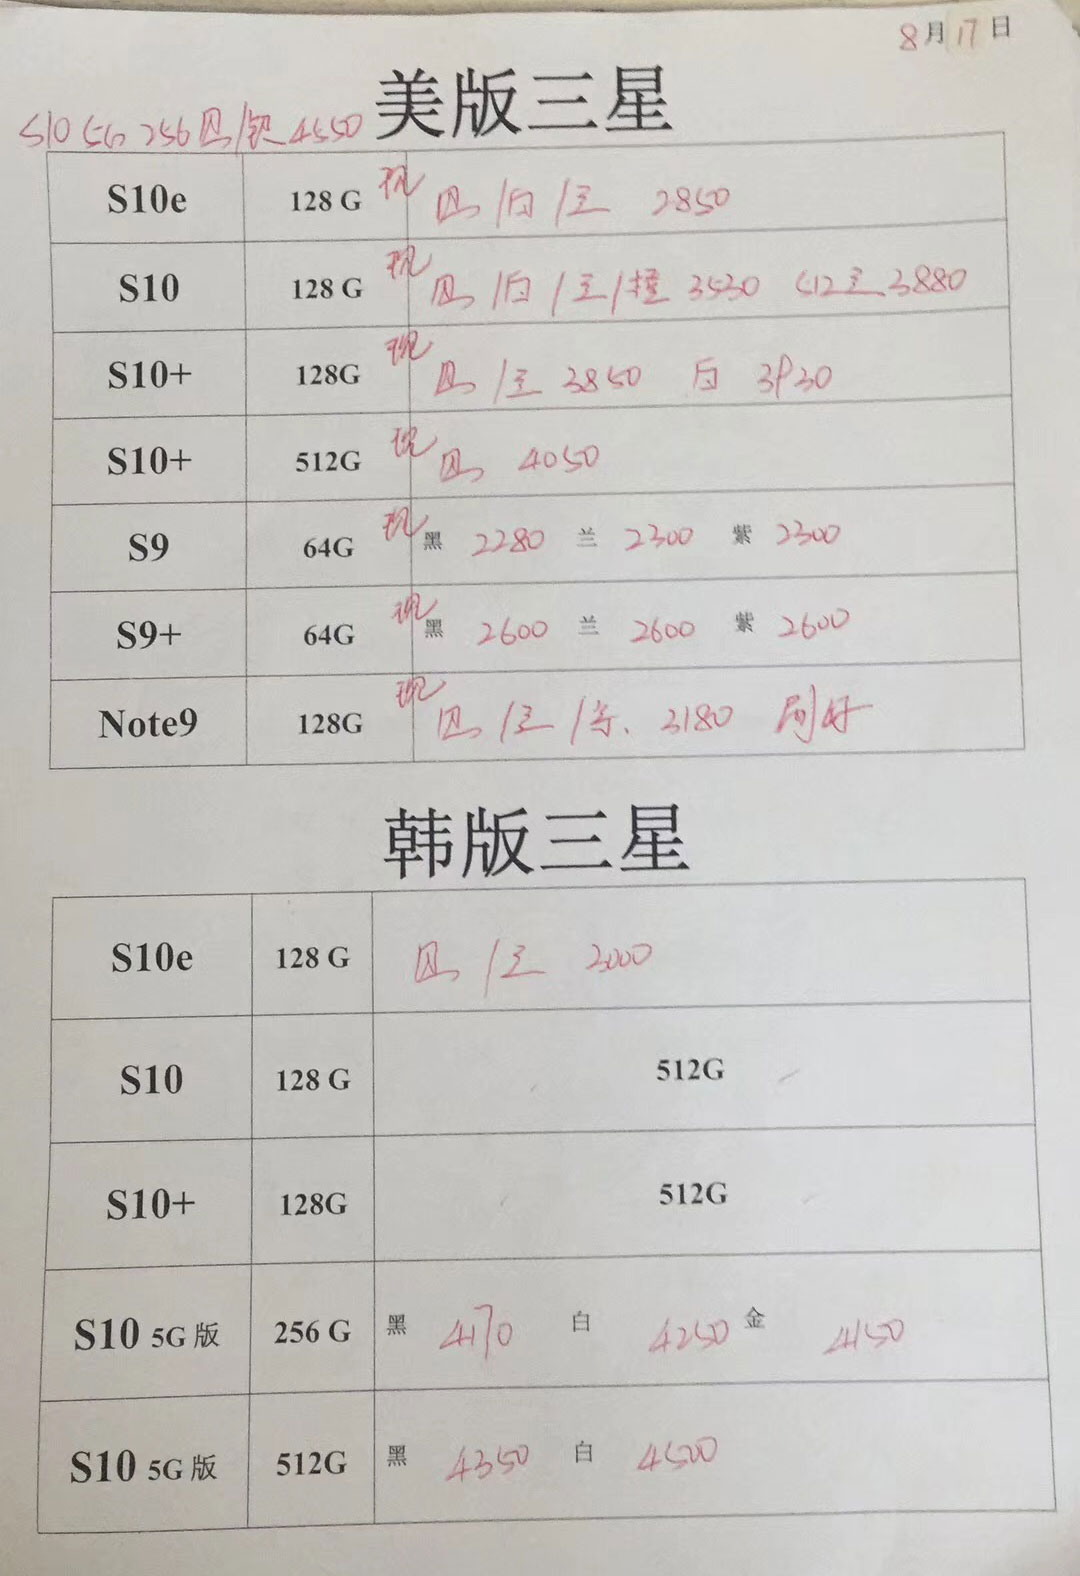 8月17日
美版三星
S10 5G 256 黑/银 4550
S10e 128 G 现 黑/白/兰 2850
S10 128 G 现 黑/白/兰/橙 3530 512兰 3880
S10+ 128G 现 黑/兰 3850 白 3930
S10+ 512G 现 黑 4050
S9 64G 现 黑 2280 兰 2300 紫 2300
S9+ 64G 现 黑 2600 兰 2600 紫 2600
Note9 128G 现 黑/兰/ 3180 刷好
韩版三星
S10e 128 G 黑/兰 3000
S10 128 G 512G
S10+ 128G 512G
S10 5G 版 256 G 黑 4170 白 4250 金 4150
S10 5G 版 512G 黑 4350 白 4500